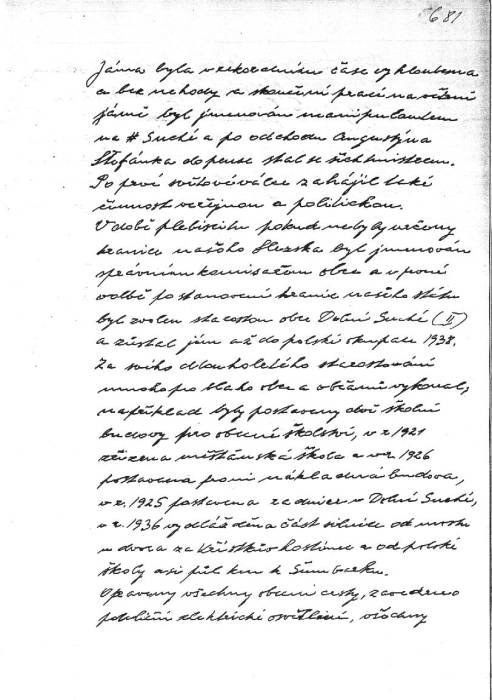 681
Jáma byla v rekordním čase vyhloubena
a bez nehody a skončení prací na
jámě byl jmenován manipulantem
na # Suché a po odchodu Augustýna
Štofánka do pense stal se šichtmistrem.
Po prvé světové válce zahájil také
činnost veřejnou a politickou.
V době plebiscitu pokud nebyly určeny
hranice našeho Slezska byl jmenován
správním komisařem obce a v prvé
volbě po stanovení hranic našeho státu
byl zvolen starostou obce Dolní Suché (II)
a zůstal jím až do polské okupace 1938.
Za svého dlouholetého starostování
mnoho pro blaho obce a občanů vykonal,
například byly postaveny dvě školní
budovy pro obecné školství, v r. 1921
zřízena měšťanská škola a v r. 1926
postavena první nákladná budova,
v r. 1925 postavena radnice v Dolní Suché,
v r. 1936 vydlážděna část silnice od mostu
u dvora za hostinec a od polské
školy asi půl km k Šumbarku.
Opraveny všechny obecní cesty, zavedeno
pouliční elektrické osvětlení, všechny